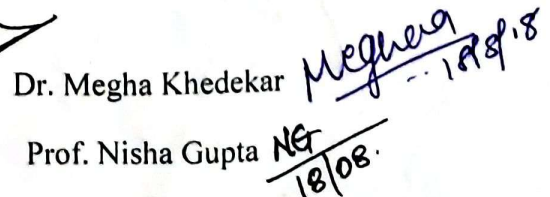 Dr. Megha Khedekar Megha
18/8/18
Prof. Nisha Gupta NG
18/08.